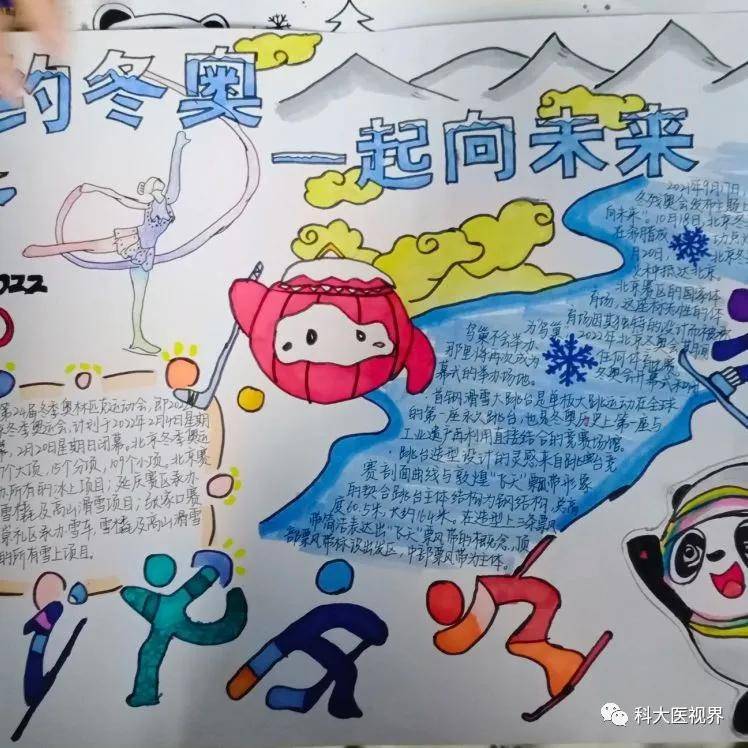 约冬奥
一起向未来
2022
2021年9月17日,
冬残奥会发布主题
向未来"。10月18日,北京冬
在希腊成
月20日,
北京冬
火种抵达北京。
北京赛区的国家体
育场,这座标志性的体
育场因其独特的设计而被称
为鸟巢。2022年北京冬奥会期间
鸟巢不会举办任何体育比赛,
那里将再次成为冬奥会开幕式和闭
幕式的举办场地。
首钢滑雪大跳台是单板大跳运动在全球
的第一座永久跳台,也是冬奥历史上第一座与
工业遗产再利用直接结合的竞赛场馆。
跳台造型设计的灵感来自跳台竞
赛剖面曲线与敦煌"飞天"飘带形象
的契合跳台主体结构为钢结构,最高
度60.5米,大约164米,在造型上三条飘风
带简洁表达出"飞天"飘风带的概念,顶
部飘风带标识出发区,中部飘风带为主体。
第24届冬季奥林匹克运动会,即202
京冬季奥运会,计划于2022年2月4日星期
幕,2月20日星期日闭幕。北京冬季奥运
7个大项,15个分项,109个小项。北京赛
办所有的冰上项目;延庆赛区承办
雪橇及高山滑雪项目;张家口赛
崇礼区承办雪车,雪橇及高山滑雪
的所有雪上项目。
科大医视界